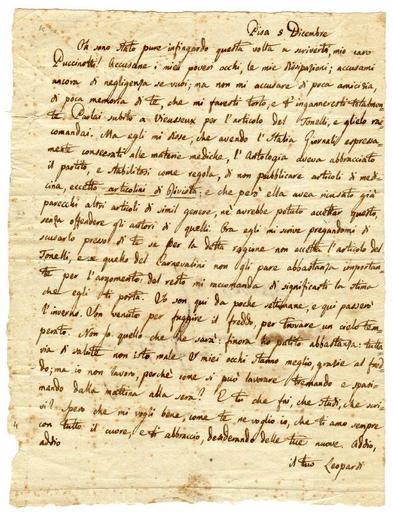 Pisa 5 Dicembre
Oh sono stato pure infingardo questa volta a scriverti, mio caro
Puccinotti! Accusane i miei poveri occhi, le mie dissipazioni; accusami
ancora di negligenza se vuoi; ma non mi accusare di poca amicizia,
di poca memoria di te, che mi faresti torto, e t'inganneresti totalmen-
te. Parlai subito a Vieusseux per l'articolo del Tonelli, e glielo rac-
comandai. Ma egli mi disse, che avendo l'Italia Giornali espressa-
mente consecrati alle materie mediche, l'Antologia aveva abbracciato
il partito, e stabilitosi come regola, di non pubblicare articoli di me-
dicina, eccetto articolini di Rivista; e che però ella avea ricusato già
parecchi altri articoli di simil genere, nè avrebbe potuto accettar questo,
senza offendere gli autori di quelli. Ora egli mi scrive pregandomi di
scusarlo presso di te se per la detta ragione non accetta l'articolo del
Tonelli, e se quello del Carnevalini non gli pare abbastanza importan-
te per l'argomento: del resto mi raccomanda di significarti la stima
che egli ti porta. Io son qui da poche settimane, e qui passerò
l'inverno. Son venuto per fuggire il freddo, per trovare un cielo tem-
perato. Non so quello che ne sarà: finora ho patito abbastanza: tutta-
via di salute non isto male. I miei occhi stanno meglio, grazie al fred-
do; ma io non lavoro, perchè come si può lavorare tremando e spasi-
mando dalla mattina alla sera? E tu che fai, che studi, che scri-
vi? spero che mi vogli bene, come te ne voglio io, che ti amo sempre
con tutto il cuore, e ti abbraccio, desiderando delle tue nuove. Addio,
addio
il tuo Leopardi